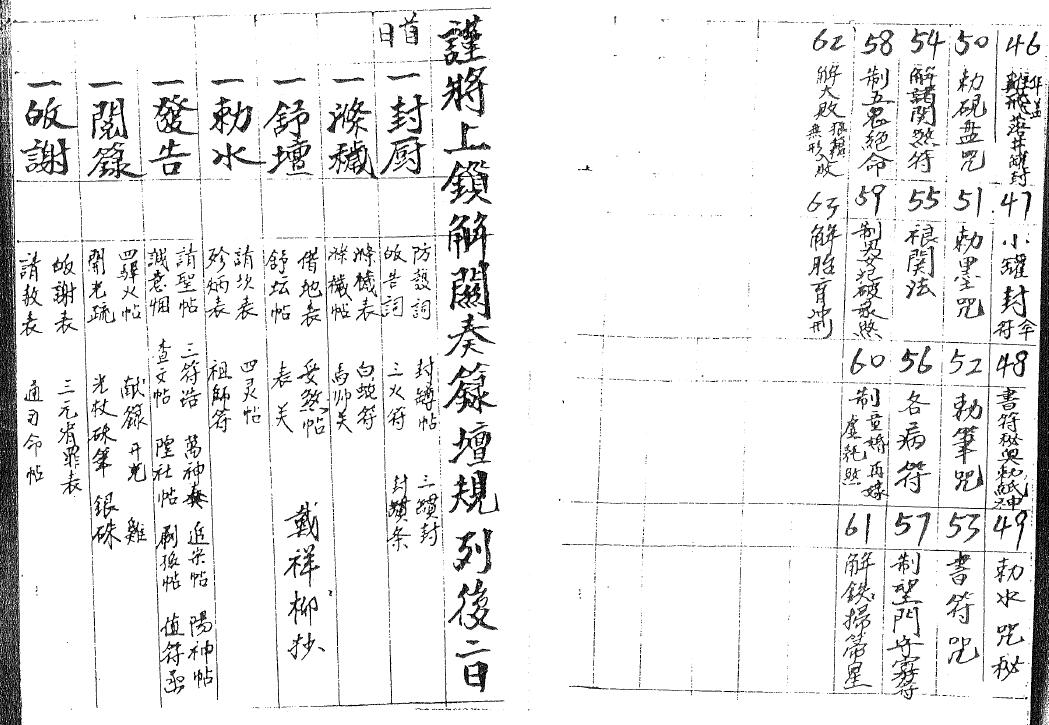 46
雞飛落井罐封
47
小罐封
符
48
書符秘奥勅紙神咒
49
勅水咒秘
50
勅硯盘咒
51
勅墨咒
52
勅筆咒
53
書符咒
54
解諸関煞符
55
禳関法
56
各病符
57
制望門守寡符
58
制五鬼絕命
59
制男犯破家煞
60
制童婚再嫁
虛耗煞
61
解鉄掃箒星
62
解大敗狼藉
無形八敗
63
解胎育冲刑
謹將上鎖解關奏籙壇規列後二日
首日
一封厨
防設詞
皈告詞
封罇帖
三火符
三鎖封
封鎖条
一滌穢
滌穢表
滌穢帖
白蛇符
一舒壇
借地表
舒坛帖
安煞帖
表关
戴祥柳抄
一勅水
請水表
殄炳表
四灵帖
祖師符
一發告
請聖帖
誠意悃
三符誥
查文帖
萬神表
陞社帖
進呆帖
陽神帖
值符函
一閱籙
四驛火帖
開光疏
献籙
开光
雞
光杖硃筆
銀硃
一皈謝
皈謝表
請赦表
三元宥罪表
通司命帖